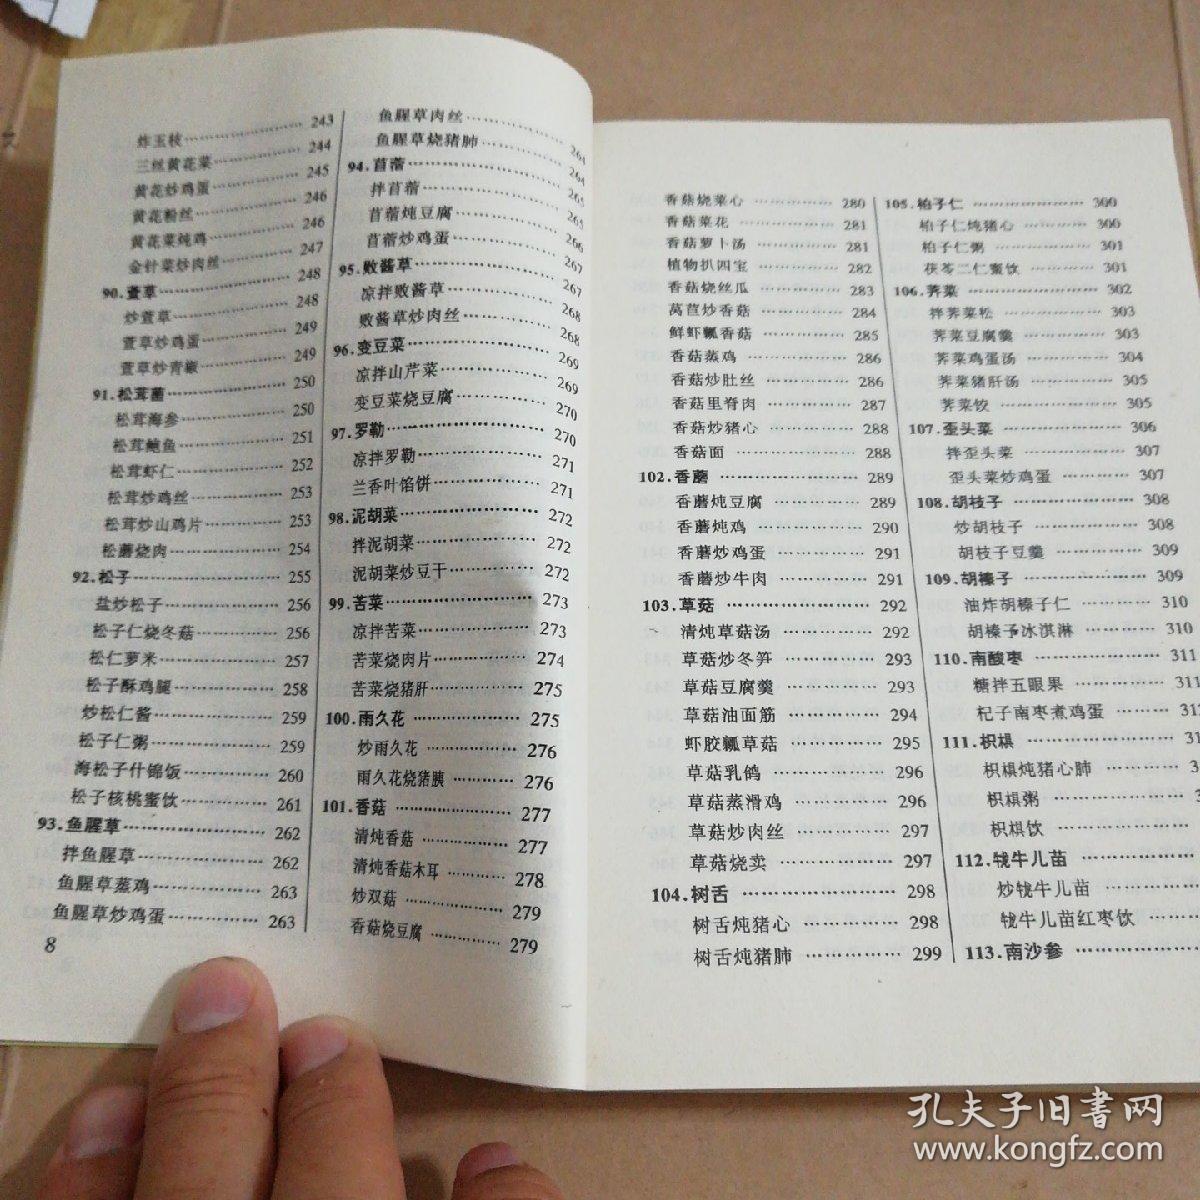 炸玉枝 243
三丝黄花菜 244
黄花炒鸡蛋 245
黄花粉丝 246
黄花菜炖鸡 246
金针菜炒肉丝 247
90.萱草 248
炒萱草 248
萱草炒鸡蛋 249
萱草炒青椒 249
91.松茸菌 250
松茸海参 250
松茸鲍鱼 251
松茸虾仁 252
松茸炒鸡丝 253
松茸炒山鸡片 253
松蘑烧肉 254
92.松子 255
盐炒松子 256
松子仁烧冬菇 256
松仁萝米 257
松子酥鸡腿 258
炒松仁酱 259
松子仁粥 259
海松子什锦饭 260
松子核桃蜜饮 261
93.鱼腥草 262
拌鱼腥草 262
鱼腥草蒸鸡 263
鱼腥草炒鸡蛋 263
8
鱼腥草肉丝 264
鱼腥草烧猪肺 264
94.苜蓿 265
拌苜蓿 265
苜蓿炖豆腐 266
苜蓿炒鸡蛋 267
95.败酱草 267
凉拌败酱草 268
败酱草炒肉丝 268
96.变豆菜 269
凉拌山芹菜 269
变豆菜烧豆腐 270
97.罗勒 270
凉拌罗勒 271
兰香叶馅饼 271
98.泥胡菜 272
拌泥胡菜 272
泥胡菜炒豆干 272
99.苦菜 273
凉拌苦菜 273
苦菜烧肉片 274
苦菜烧猪肝 275
100.雨久花 275
炒雨久花 276
雨久花烧猪胰 276
101.香菇 277
清炖香菇 277
清炖香菇木耳 278
炒双菇 279
香菇烧豆腐 279
香菇烧菜心 280
香菇菜花 281
香菇萝卜汤 281
植物扒四宝 282
香菇烧丝瓜 283
莴苣炒香菇 284
鲜虾瓤香菇 285
香菇蒸鸡 286
香菇炒肚丝 286
香菇里脊肉 287
香菇炒猪心 288
香菇面 288
102.香蘑 289
香蘑炖豆腐 289
香蘑炖鸡 290
香蘑炒鸡蛋 291
香蘑炒牛肉 291
103.草菇 292
清炖草菇汤 292
草菇炒冬笋 293
草菇豆腐羹 293
草菇油面筋 294
虾胶瓤草菇 295
草菇乳鸽 296
草菇蒸滑鸡 296
草菇炒肉丝 297
草菇烧卖 297
104.树舌 298
树舌炖猪心 298
树舌炖猪肺 299
105.柏子仁 300
柏子仁炖猪心 300
柏子仁粥 301
茯苓二仁蜜饮 301
106.荠菜 302
拌荠菜松 303
荠菜豆腐羹 303
荠菜鸡蛋汤 304
荠菜猪肝汤 305
荠菜饺 305
107.歪头菜 306
拌歪头菜 307
歪头菜炒鸡蛋 307
108.胡枝子 308
炒胡枝子 308
胡枝子豆羹 309
109.胡榛子 309
油炸胡榛子仁 310
胡榛子冰淇淋 310
110.南酸枣 311
糖拌五眼果 311
杞子南枣煮鸡蛋
111.枳椇
枳椇炖猪心肺
枳椇粥
枳椇饮
112.牻牛儿苗
炒牻牛儿苗
牻牛儿苗红枣饮
113.南沙参
孔夫子旧书网
www.kongfz.com